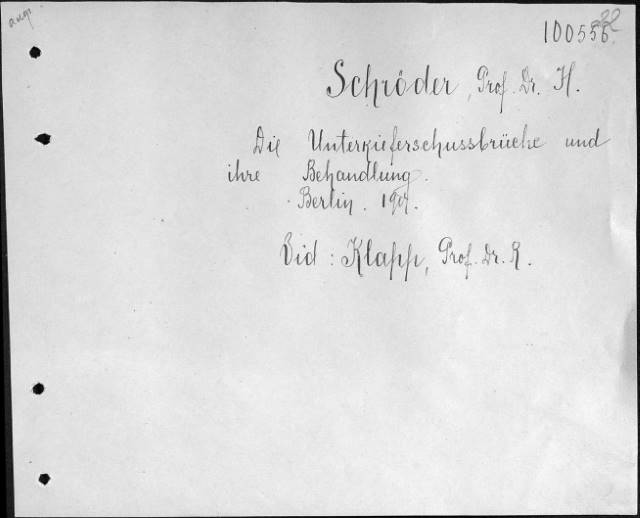 100556
Schröder, Prof. Dr. H.
Die Unterkieferschussbrüche und
ihre Behandlung.
Berlin. 1917.
Vid: Klapp, Prof. Dr. R.